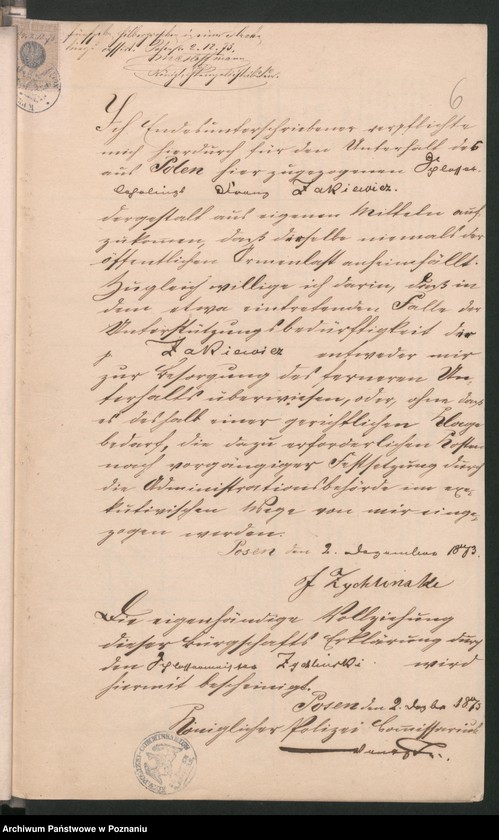 Posen 2.12.73.
6
Ich Endesunterschriebener verpflichte
mich hierdurch für den Unterhalt des
aus Polen hier zugezogenen Schlosser-
lehrlings Franz Zakiewicz.
dergestalt aus eigenen Mitteln auf-
zukommen, daß derselbe niemals der
öffentlichen Armenlast anheimfällt.
Zugleich willige ich darin, daß in
dem etwa eintretenden Falle der
Unterstützungsbedürftigkeit des
p Zakiewicz entweder mir
zur Besorgung des ferneren Un-
terhalts überwiesen, oder, ohne daß
es deshalb einer gerichtlichen Klage
bedarf, die dazu erforderlichen Kosten
nach vorgängiger Festsetzung durch
die Administrationsbehörde im exe-
kutivischen Wege von mir einge-
zogen werden.
Posen den 2. Dezember 1873.
J Zychlinski
Die eigenhändige Vollziehung
dieser Bürgschafts Erklärung durch
den Schlossermeister Zychlinski wird
hiermit bescheinigt.
Posen den 2. Dezbr 1873
Königlicher Polizei Commissarius
Archiwum Państwowe w Poznaniu